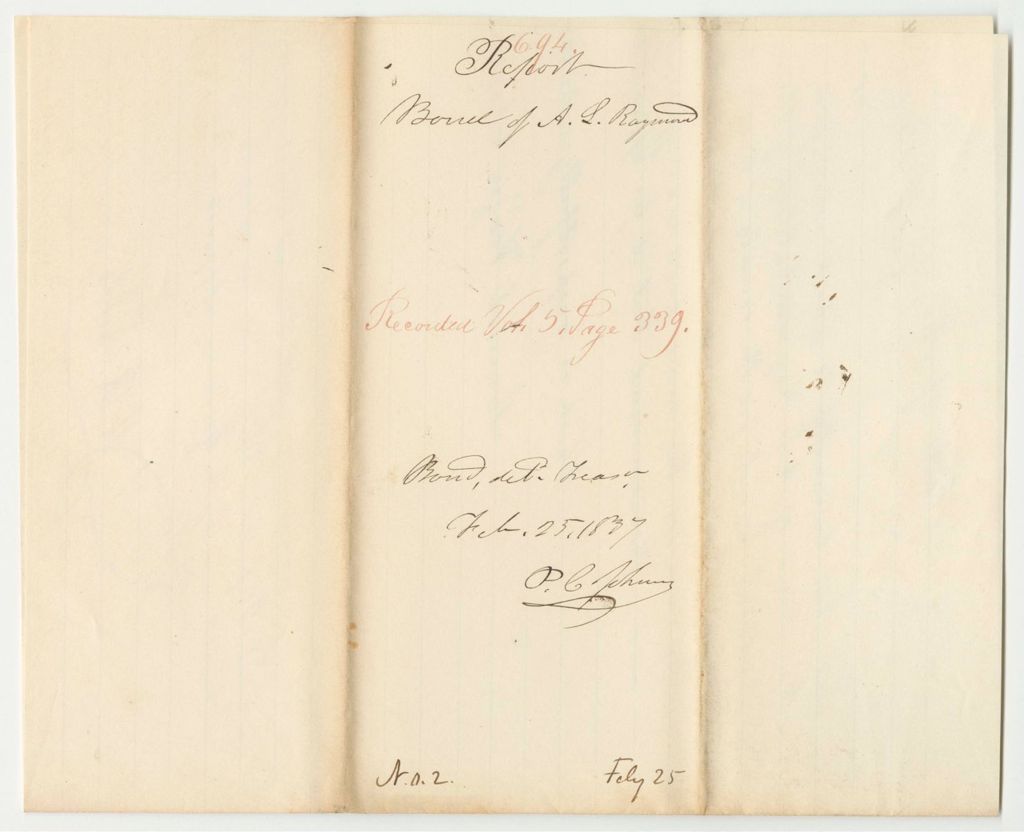 694.
Report
Bond of A. L. Raymond
Recorded Vol. 5. Page 339.
Bond, deld. Treasr.
Feb. 25. 1837
P. C. Johnson
No. 2. Feby 25